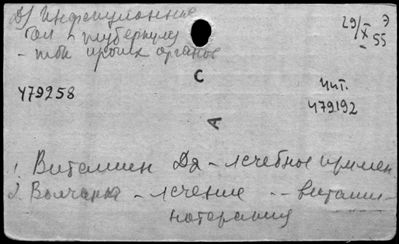 Д) Инфекционные
бол - туберкул
- тки проих органов
29/X 55
Э
С
479258
чит.
479192
А
1. Витамин Д2 - лечебное примен
2. Волчанка - лечение -- витами-
нотерапия